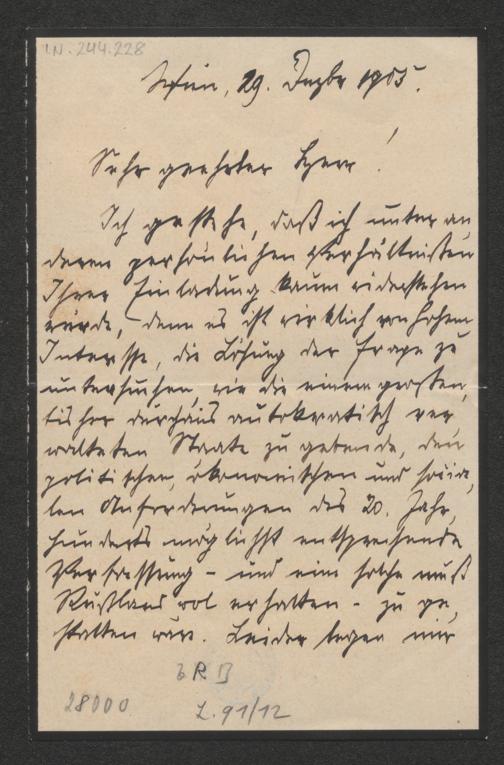 I.N. 244.228
Wien, 29. Dezbr 1905.
Sehr geehrter Herr!
Ich gestehe, daß ich unter an
deren persönlichen Verhältnissen
Ihrer Einladung kaum widerstehen
würde, denn es ist wirklich von hohem
Interesse, die Lösung der Frage zu
untersuchen, wie die einem grossen,
bisher durchaus autokratisch ver
walteten Staate zu gebende, den
politischen, ökonomischen und sozia,
len Anforderungen des 20. Jahr,
hunderts möglichst entsprechende
Verfassung - und eine solche muß
Rußland wol erhalten - zu ge,
stalten wäre. Leider legen mir
28000
Z. 91/12